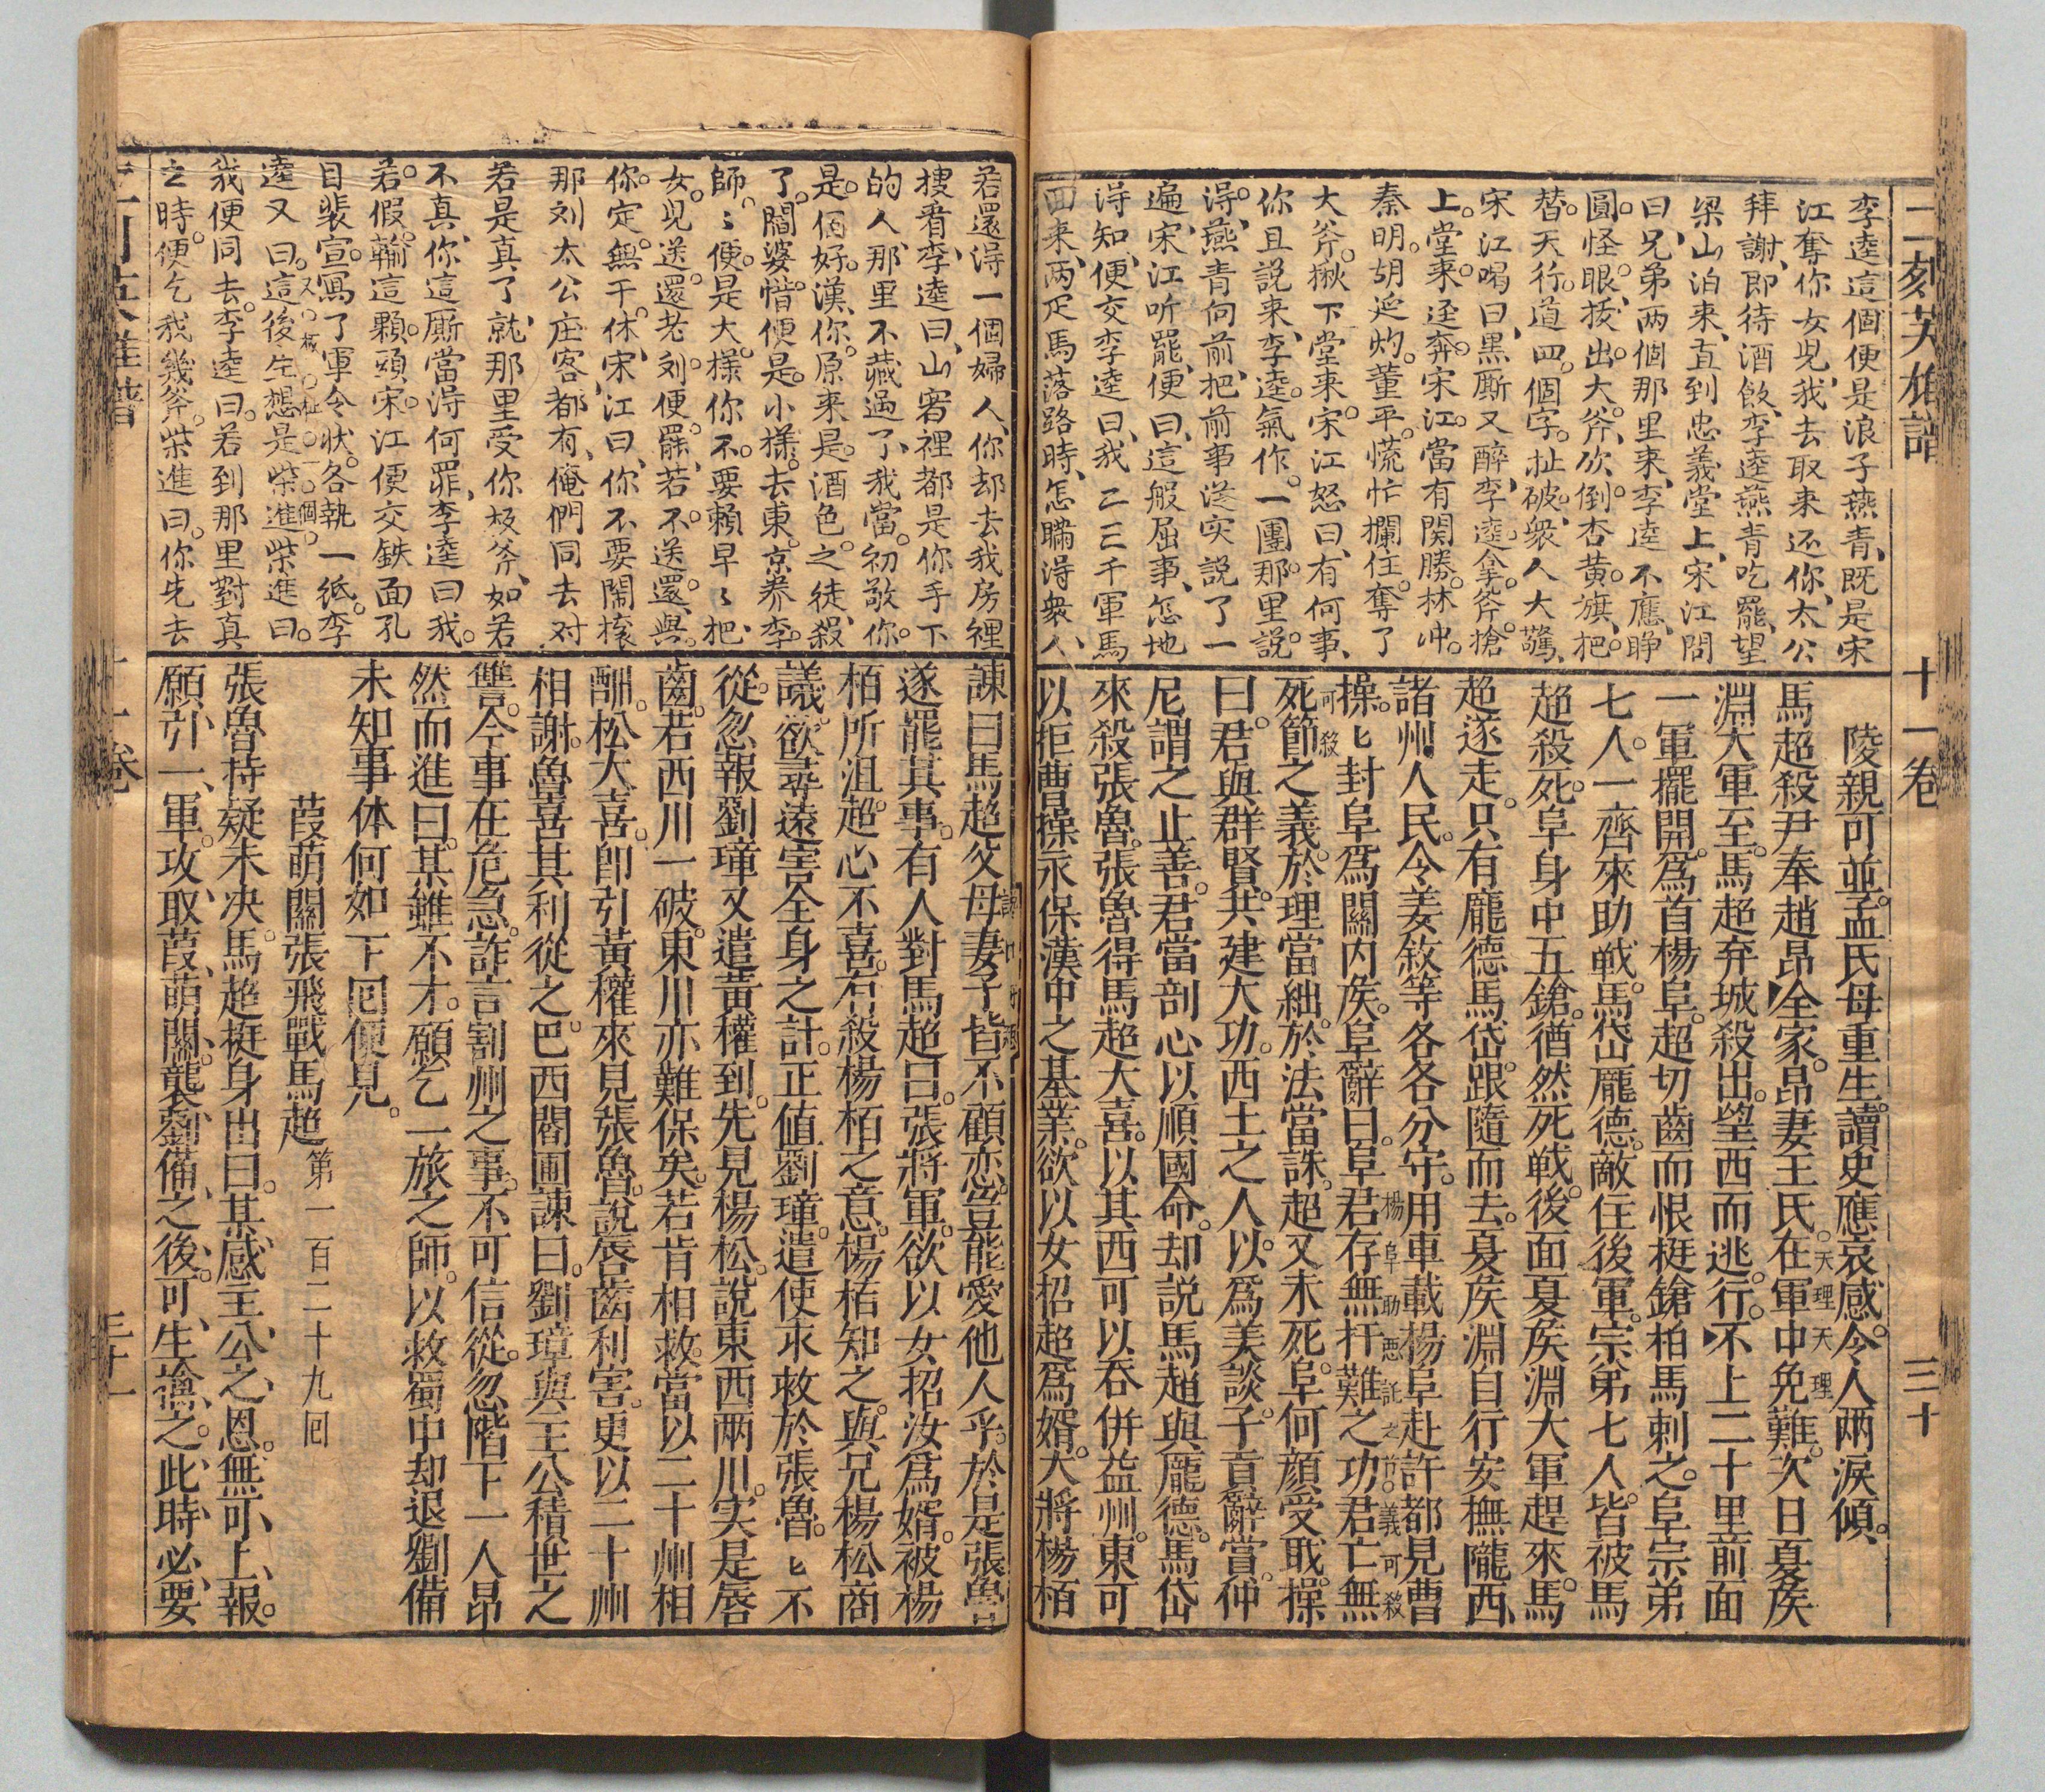 二刻英雄譜 十一卷 三十
李逵這個便是浪子燕青、既是宋
江奪你女児、我去取来还你、太公
拜謝、即待酒飯、李逵燕青吃罷、望
梁山泊来、直到忠義堂上、宋江問
曰、兄弟两個那里来、李逵不應、睜
圓怪眼、拔出大斧、砍倒杏黄旗、把
替天行道四個字扯破、衆人大驚、
宋江喝曰、黒厮又醉、李逵拿斧搶
上堂来、逕奔宋江、當有関勝林冲
秦明胡延灼董平慌忙攔住、奪了
大斧、揪下堂来、宋江怒曰、有何事、
你且説来、李逵氣作一團、那里説
得、燕青向前、把前事從实説了一
遍、宋江听罷、便曰、這般屈事、怎地
得知、便交李逵曰、我二三千軍馬
囬来、两疋馬落路時、怎瞞得衆人、
陵親可並。孟氏母重生。讀史應哀感。令人兩淚傾。
馬超殺尹奉趙昂全家。昂妻王氏。在軍中免難。次日夏矦
天理天理
淵大軍至。馬超弃城殺出。望西而逃。行。不上二十里前面
一軍擺開。爲首楊阜。超切齒而恨挺鎗柏馬刺之。阜宗弟
七人。一齊來助戦。馬岱龐德。敵住後軍。宗弟七人。皆被馬
超殺死。阜身中五鎗。猶然死戦。後面夏矦淵大軍趕來。馬
超遂走。只有龐德馬岱。跟隨而去。夏矦淵自行安撫隴西、
諸州人民。令姜敘等各各分守。用車載楊阜赴許都見曹
楊阜助惡託之竹。義可殺
操。匕封阜爲關内矦。阜辭曰。阜君存無扞難之功君亡無
可殺
死節之義。於理當絀。於法當誅。超又未死。阜。何顔受職。操
曰。君與群賢。共建大功。西土之人。以爲美談。子貢辭賞。仲
尼謂之止善。君當剖心以順國命。却説馬超與龐德。馬岱
來殺張魯。張魯得馬超大喜。以其西可以吞併益州。東可
以拒曹操永保漢中之基業。欲以女招超爲婿。大將楊栢
若還得一個婦人、你却去我房裡
搜看、李逵曰、山寨裡都是你手下
的人、那里不藏過了、我當初敬你
是個好漢、你原来是酒色之徒、殺
了閻婆惜便是小樣、去東京养李
師〻便是大樣、你不要賴、早〻把
女児送還老刘便罷、若不送還、與
你定無干休、宋江曰、你不要鬧攘
那刘太公庄客都有、俺們同去对
若是真了、就那里受你板斧、如若
不真、你這厮當得何罪、李逵曰、我
若假、輸這顆頭、宋江便交鉄面孔
目裴宣、寫了軍令状、各執一紙、李
又板扯一個
逵又曰、這後生想是柴進、柴進曰、
我便同去、李逵曰、若到那里對真
之時、便乞我幾斧、柴進曰、你先去
諫曰馬超父母妻子皆不顧恋。豈能愛他人乎。於是張魯
遂罷其事。有人對馬超曰。張將軍。欲以女招汝爲婿。被楊
栢所沮。超心不喜。有殺楊栢之意。楊栢知之。與兄楊松商
議。欲尋遠害全身之計。正值劉璋。遣使求救於張魯。匕不
從。忽報劉璋又遣黃權到。先見楊松。說東西兩川。実是唇
齒。若西川一破。東川亦難保矣。若肯相救。當以二十州相
酬。松大喜。即引黃權來見張魯。說唇齒利害。更以二十州
相謝。魯喜其利從之。巴西閻圃諫曰。劉璋與主公積世之
讐。今事在危急。詐言割州之事。不可信從。忽階下一人昂
然而進曰。某雖不才。願乞一旅之師。以救蜀中却退劉備
未知事体何如下囘便見。
葭萌關張飛戰馬超 第一百二十九囘
張魯持疑未决。馬超挺身出曰。某感主公之恩。無可上報。
願引一軍。攻取葭萌關。襲劉備之後。可生擒之。此時必要